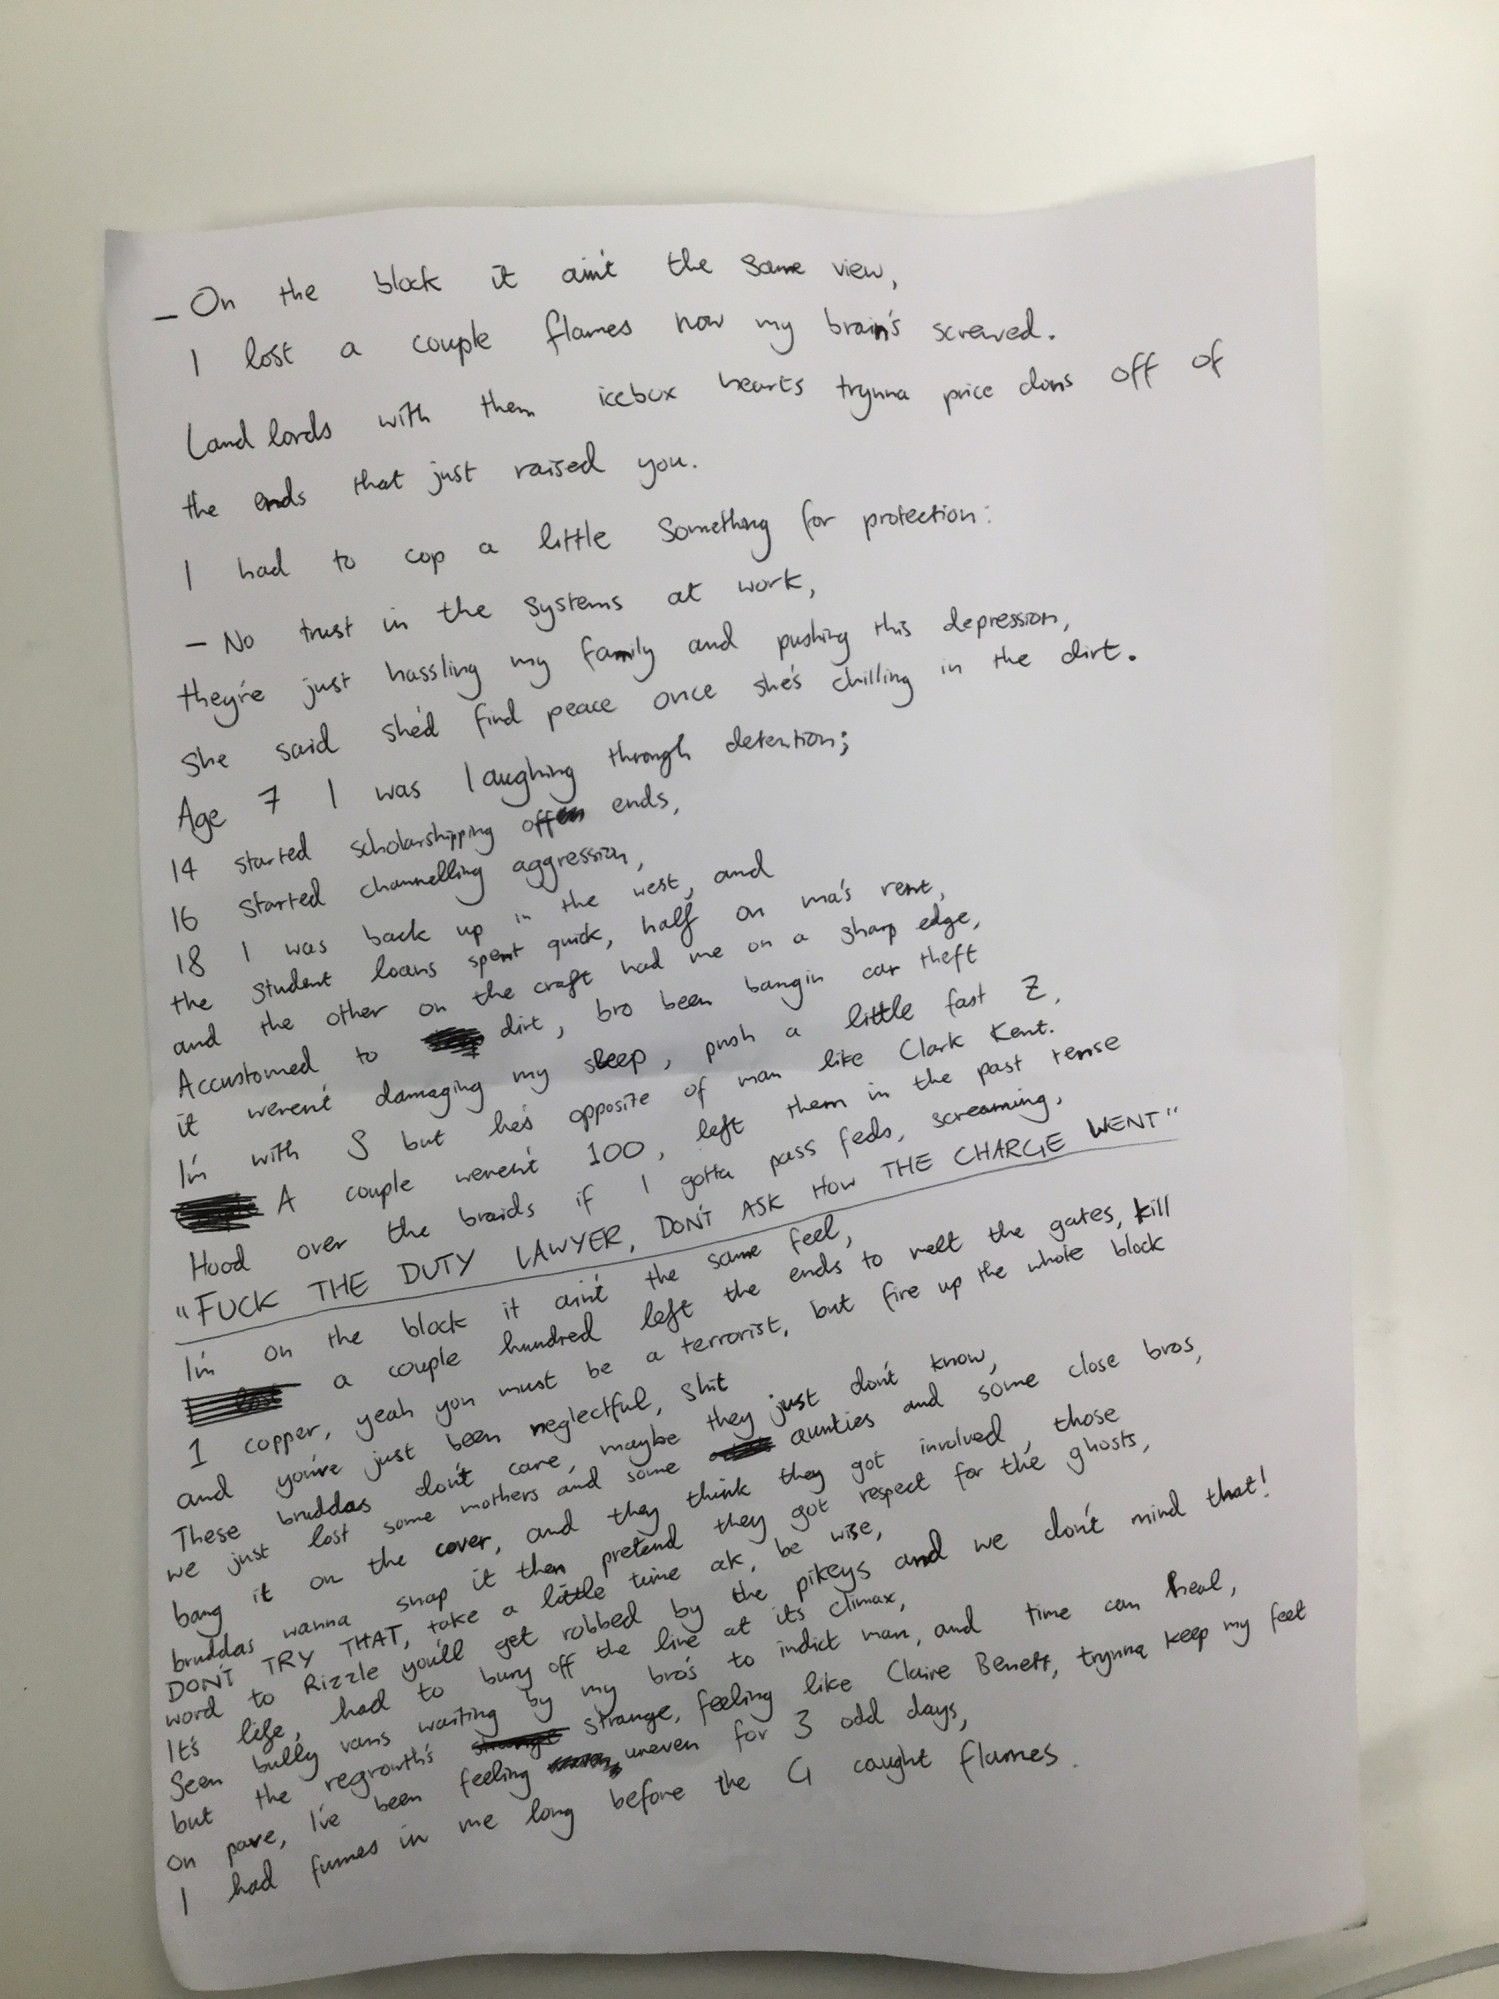 – On the block it ain't the same view,
I lost a couple flames now my brain's screwed.
Landlords with them icebox hearts trynna price dons off of
the ends that just raised you.
I had to cop a little something for protection:
– No trust in the systems at work,
they're just hassling my family and pushing this depression,
She said she'd find peace once she's chilling in the dirt.
Age 7 I was laughing through detention;
14 started scholarshipping off ends,
16 started channelling aggression,
18 I was back up in the west, and
the student loans spent quick, half on ma's rent,
and the other on the craft had me on a sharp edge,
Accustomed to dirt, bro been bangin car theft
it weren't damaging my sleep, push a little fast Z,
I'm with S but he's opposite of man like Clark Kent.
A couple weren't 100, left them in the past tense
Hood over the braids if I gotta pass feds, screaming,
"FUCK THE DUTY LAWYER, DON'T ASK HOW THE CHARGE WENT"
I'm on the block it ain't the same feel,
a couple hundred left the ends to melt the gates, kill
1 copper, yeah you must be a terrorist, but fire up the whole block
and you've just been neglectful, shit
These bruddas don't care, maybe they just don't know,
we just lost some mothers and some aunties and some close bros,
bang it on the cover, and they think they got involved, those
bruddas wanna snap it then pretend they got respect for the ghosts,
DON'T TRY THAT, take a little time ak, be wise,
word to Rizzle you'll get robbed by the pikeys and we don't mind that!
It's life, had to bury off the live at its climax,
Seen bully vans waiting by my bro's to indict man, and time can heal,
but the regrowth's strange, feeling like Claire Benett, trynna keep my feet
on pave, I've been feeling uneven for 3 odd days,
I had fumes in me long before the G caught flames.